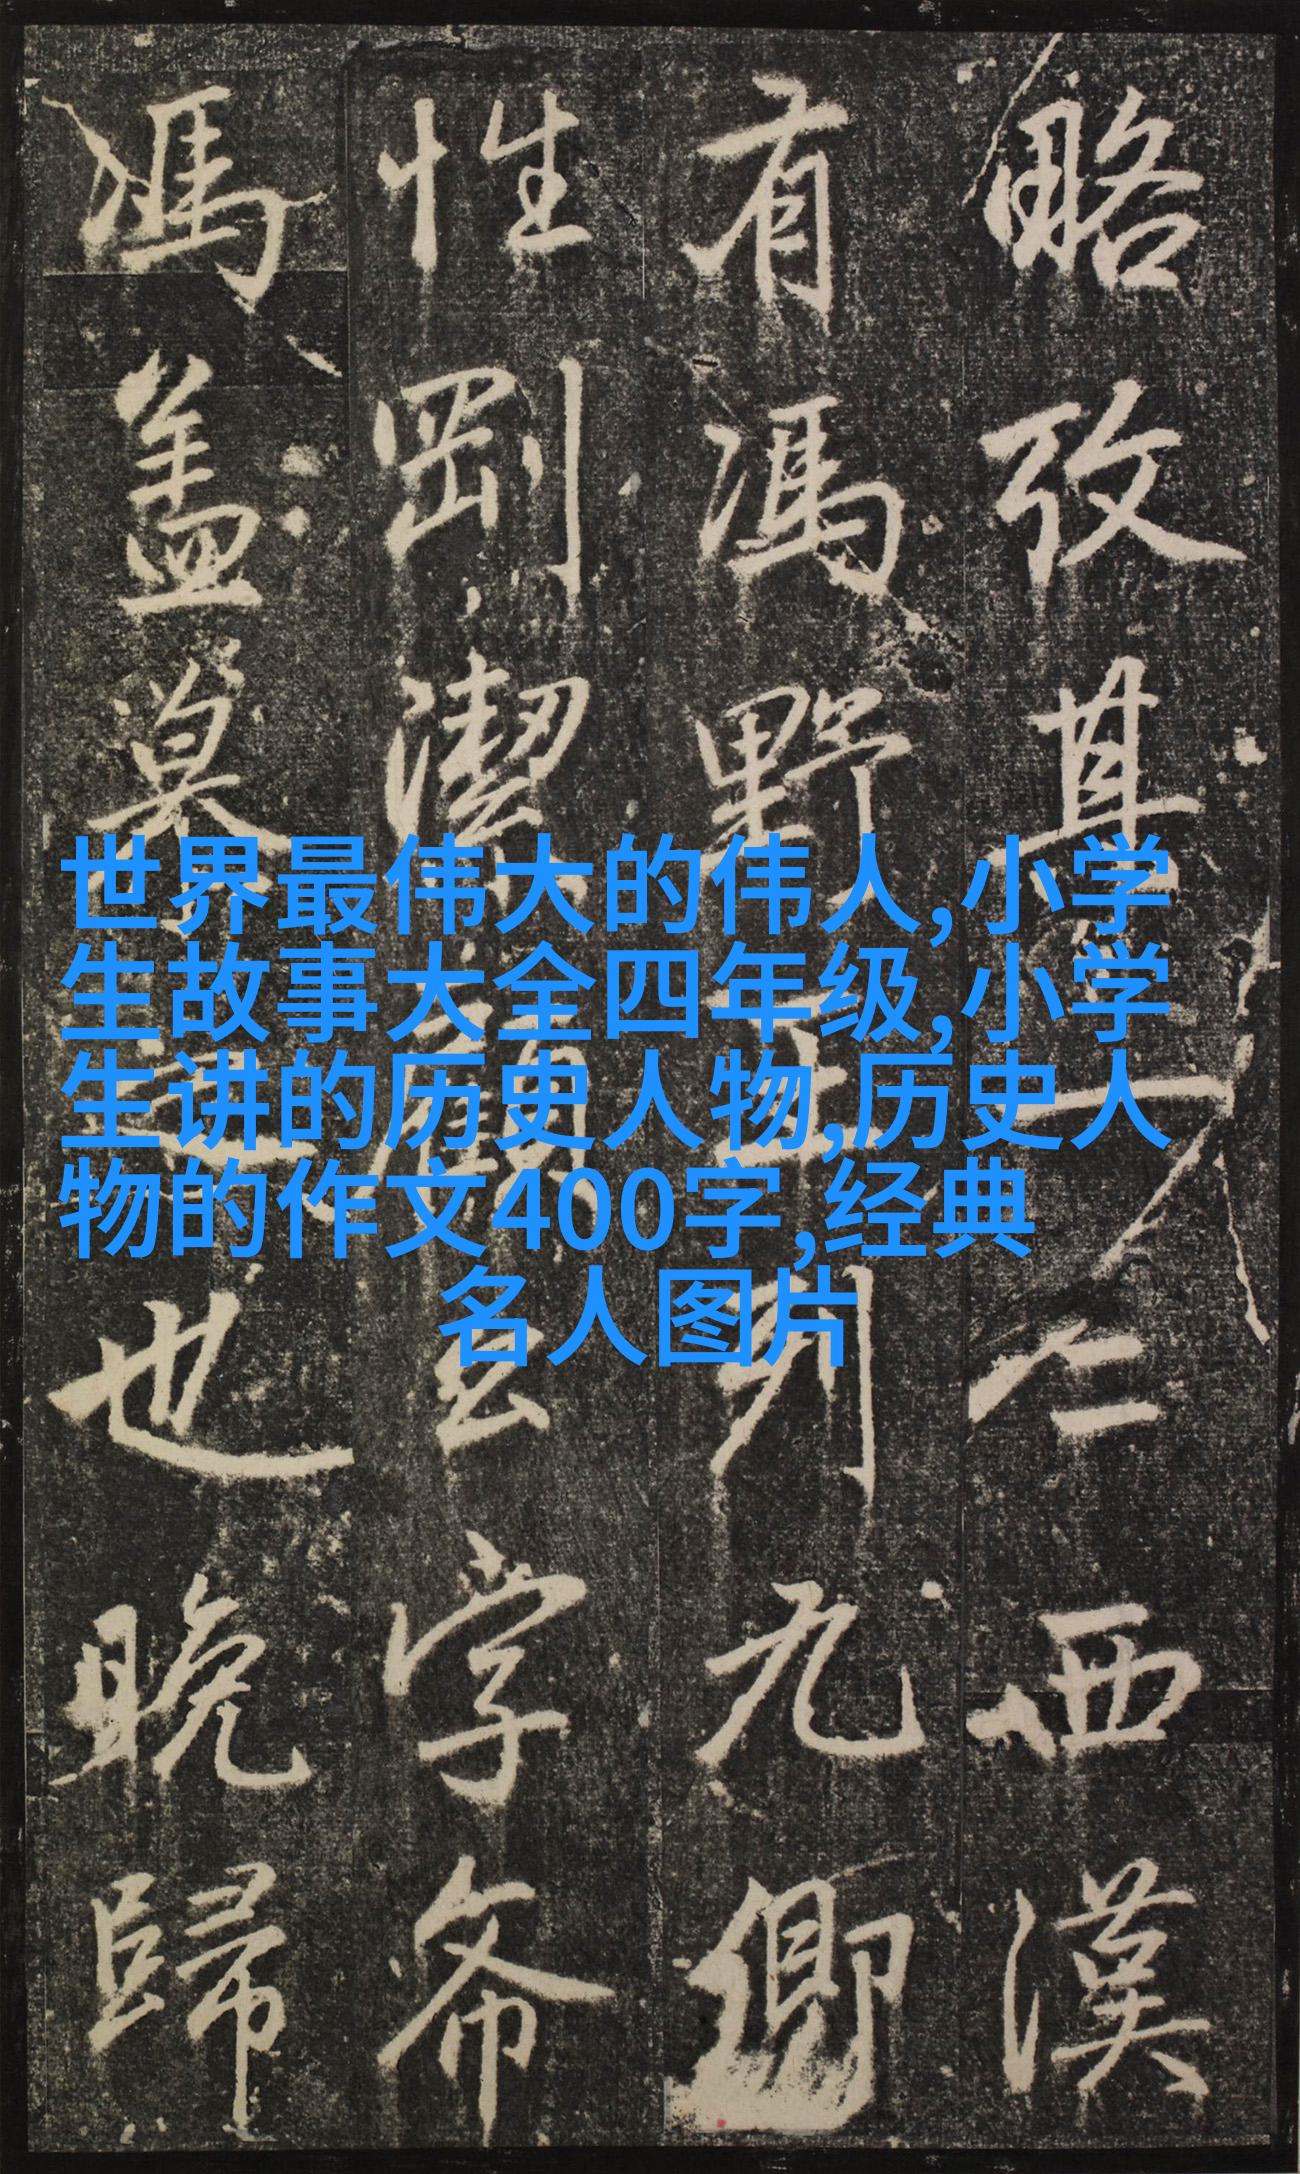 世界最伟大的伟人,小学
生故事大全四年级,小学
生讲的历史人物,历史人
物的作文400字,经典
名人图片
略攷其仁西漢
有馮野王列九卿
性剛潔字
馮盖莫也晚歸